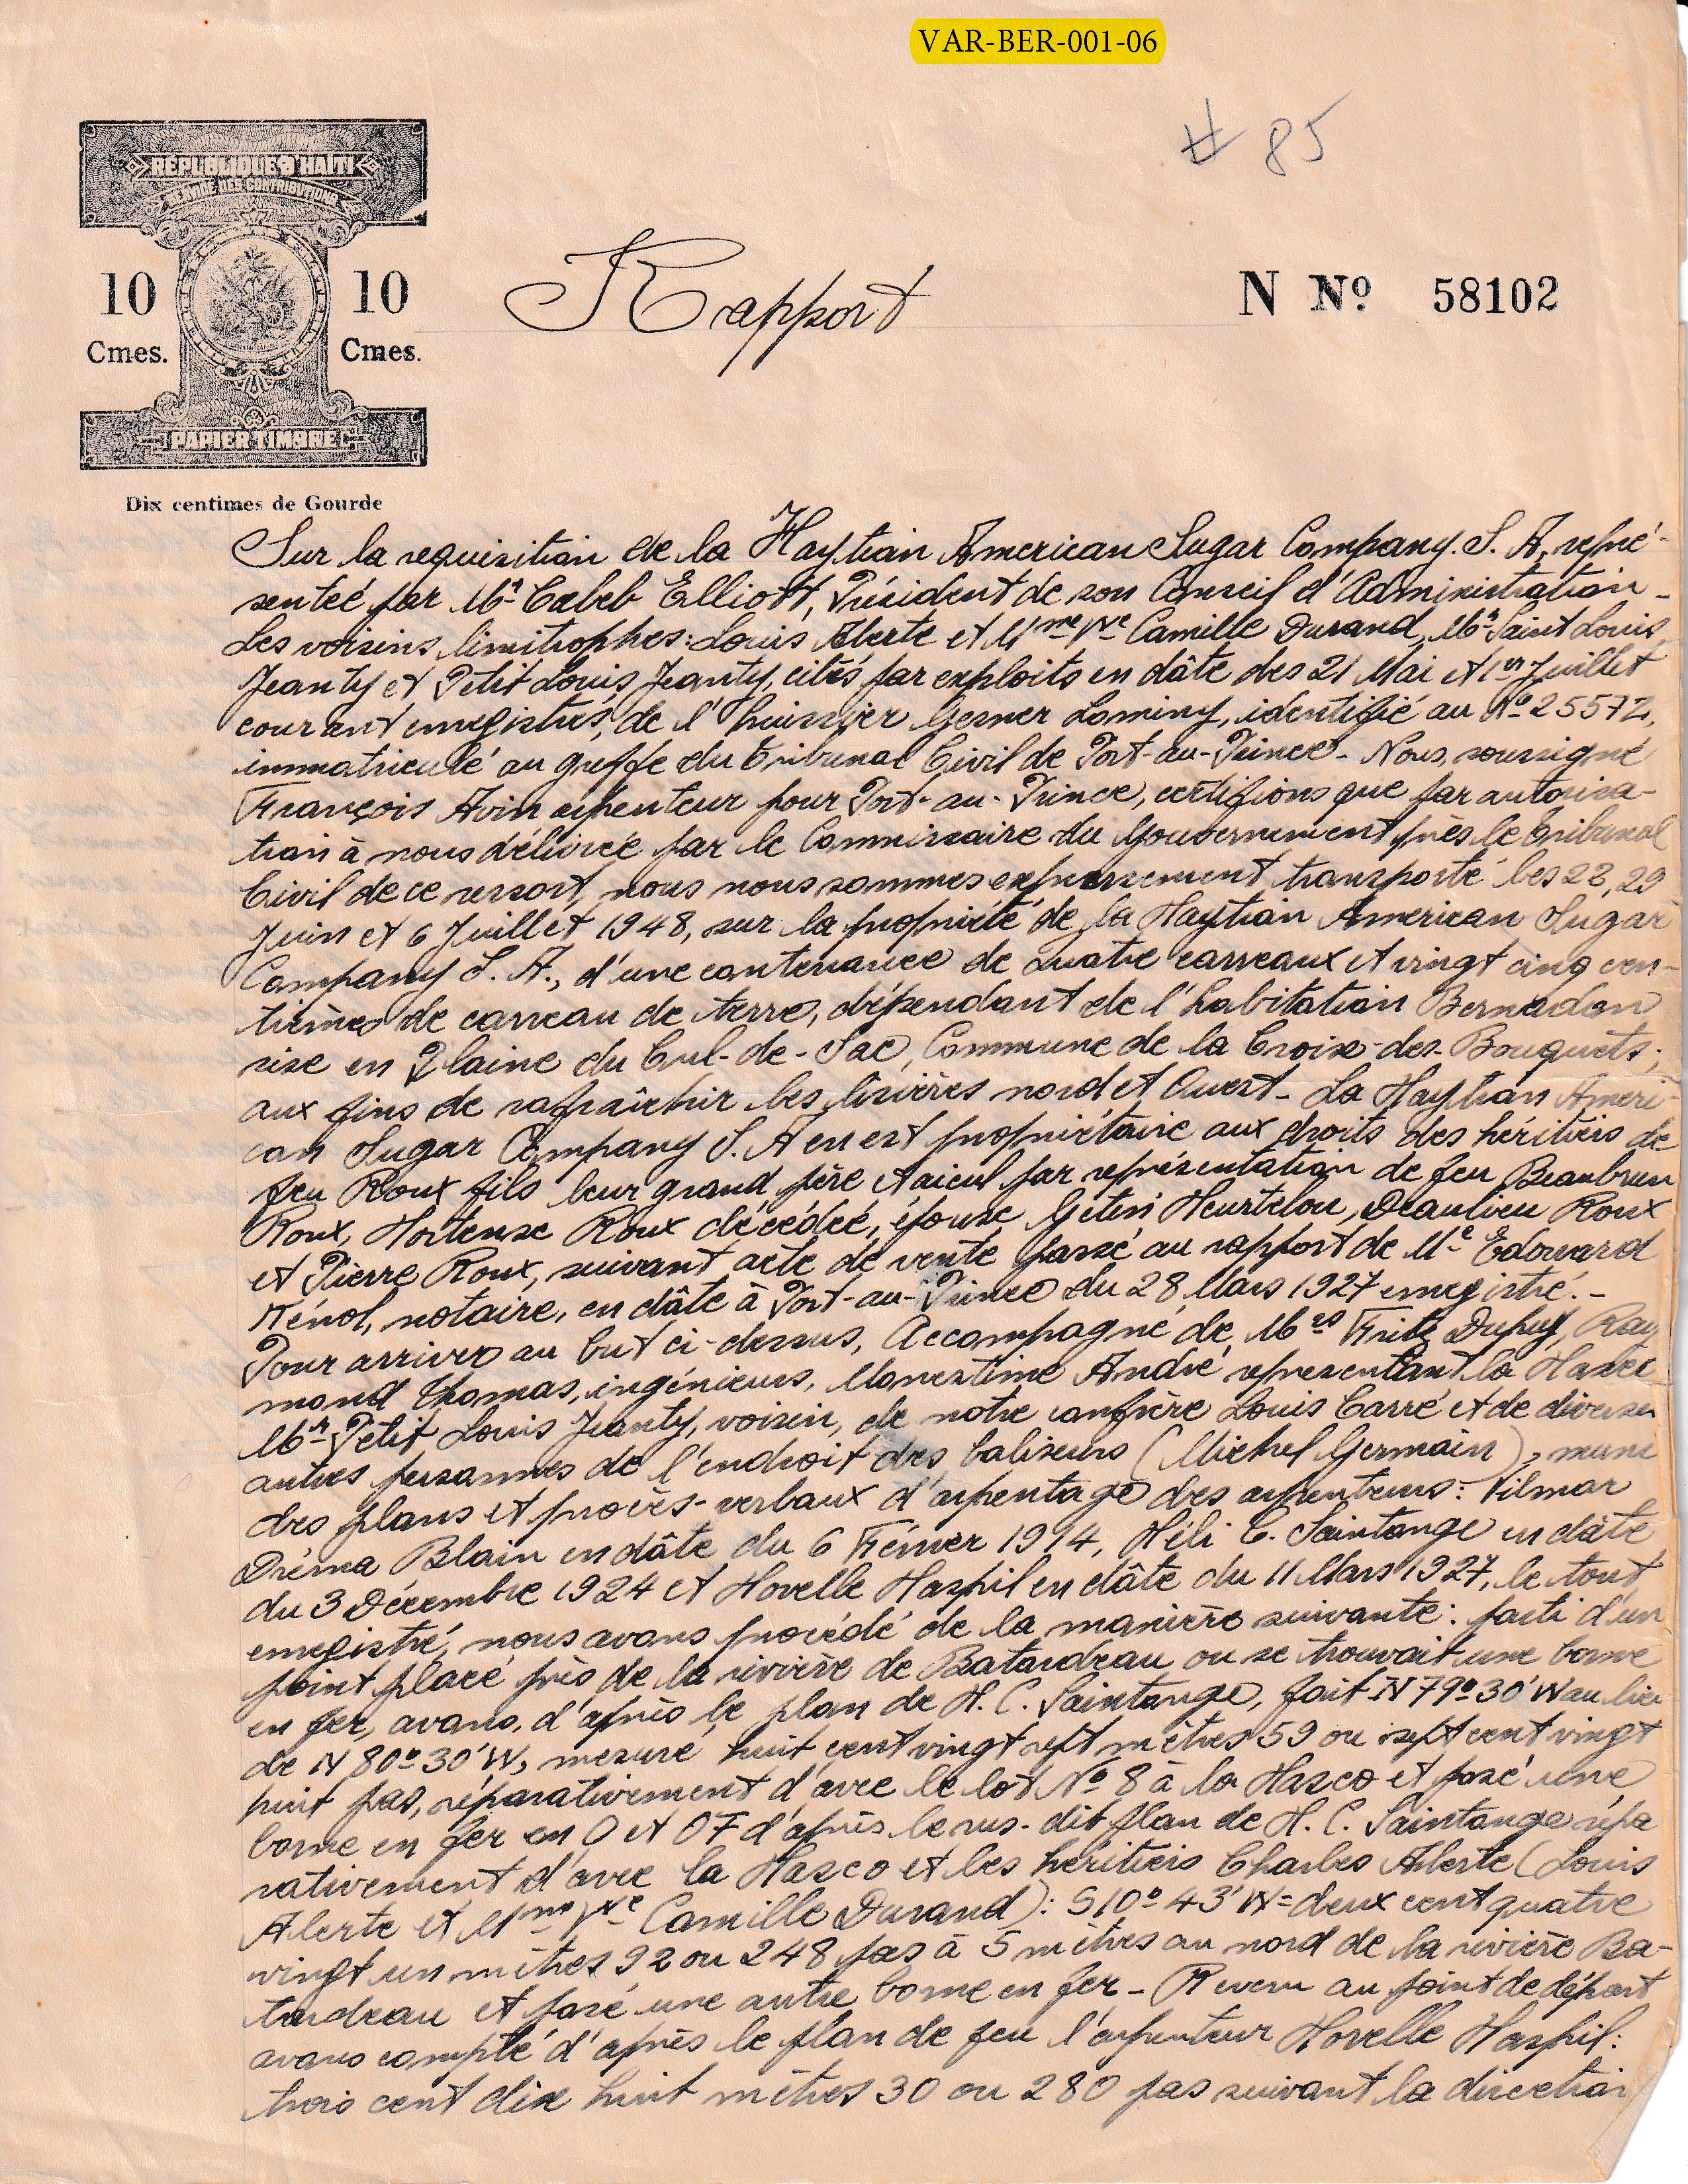 VAR-BER-001-06
# 85
RÉPUBLIQUE D'HAÏTI
SERVICE DES CONTRIBUTIONS
10 10
Cmes. Cmes.
PAPIER TIMBRÉ
Dix centimes de Gourde
Rapport
N No. 58102
Sur la requisition de la Haytian American Sugar Company. S. A, repré-
sentée par Mr. Caleb Elliott, Président de son Conseil d'Administration -
Les voisins limitrophes: Louis Alerte et Mme Vve Camille Durand, Mr. Saint Louis
Jeanty et Petit Louis Jeanty, cités par exploits en dâte des 21 Mai et 1er Juillet
courant enregistrés, de l'huissier Gesner Lominy, identifié au No. 25572,
immatriculé au greffe du tribunal Civil de Port-au-Prince - Nous, soussigné
François Avin arpenteur pour Port-au-Prince, certifions que par autorisa-
tion à nous délivrée par le Commissaire du Gouvernement près le tribunal
Civil de ce ressort, nous nous sommes expressement transporté les 28, 29
Juin et 6 Juillet 1948, sur la propriété de la Haytian American Sugar
Company S. A., d'une contenance de quatre carreaux et vingt cinq cen-
tièmes de carreau de terre, dépendant de l'habitation Bernadon
sise en Plaine du Cul-de-Sac, Commune de la Croix-des-Bouquets;
aux fins de rafraîchir les lisières nord et Ouest - La Haytian Ameri-
can Sugar Company S. A en est propriétaire aux droits des héritiers de
feu Roux fils leur grand père et aieul par représentation de feu Beaubrun
Roux, Hortense Roux décédée, épouse Gétin Heurtelou, Deaulieu Roux
et Pierre Roux, suivant acte de vente passé au rapport de Me Edouard
Kénol, notaire, en dâte à Port-au-Prince du 28 Mars 1927 enregistré. -
Pour arriver au but ci-dessus, Accompagné de, Mrs Fritz Dupuy, Ray
mond Thomas, ingénieurs, Monestime André représentant la Hasco
Mr. Petit Louis Jeanty, voisin, de notre confrère Louis Carré et de diverses
autres personnes de l'endroit des baliseurs (Michel Germain), muni
des plans et procès-verbaux d'arpentage des arpenteurs: Vilmar
Dréma Blain en dâte du 6 Février 1914, Héli C. Saintange en dâte
du 3 Décembre 1924 et Hovelle Haspil en dâte du 11 Mars 1927, le tout
enregistré, nous avons procédé de la manière suivante: parti d'un
point placé près de la rivière de Batardeau ou se trouvait une borne
en fer, avons, d'après le plan de H. C. Saintange, fait N 79º 30' W au lieu
de N 80º 30' W, mesuré huit cent vingt sept mètres 59 ou sept cent vingt
huit pas, séparativement d'avec le lot No 8 à la Hasco et posé une
borne en fer en O et OF d'après le sus-dit plan de H. C. Saintange sépa
rativement d'avec la Hasco et les héritiers Charles Alerte (Louis
Alerte et Mme Vve Camille Durand): S 10º 43' W = deux cent quatre
vingt un mètres 92 ou 248 pas à 5 mètres au nord de la rivière Ba-
tardeau et posé une autre borne en fer - Revenu au point de départ
avons compté d'après le plan de feu l'arpenteur Hovelle Haspil:
trois cent dix huit mètres 30 ou 280 pas suivant la direction